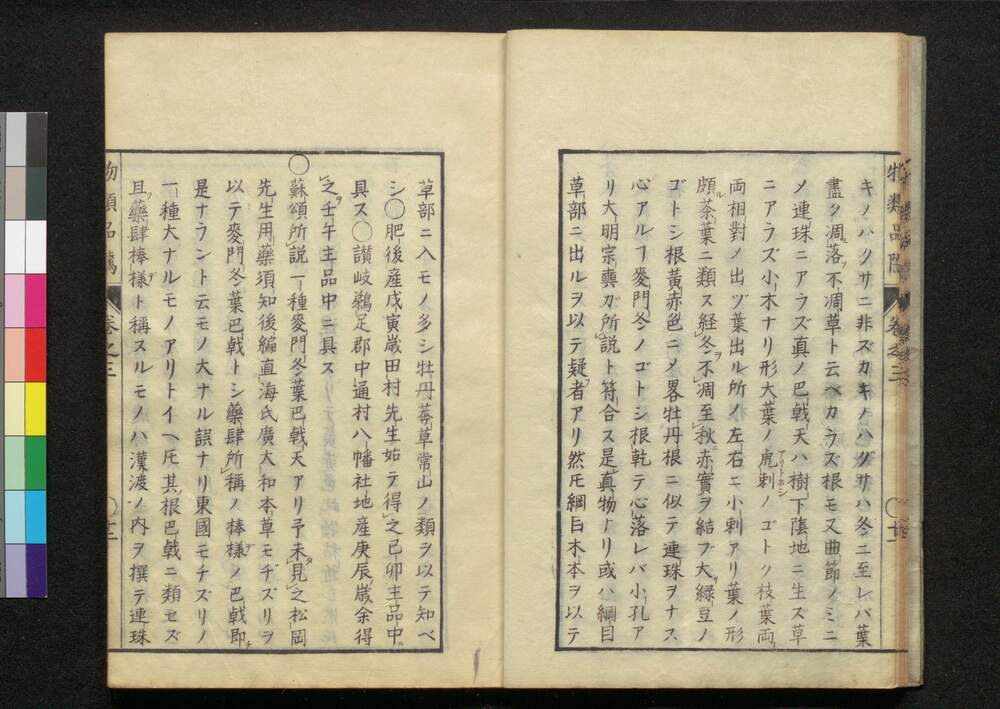 キノハグサニ非ズカキノハグサハ冬ニ至レバ葉
盡ク凋落ソ不凋草ト云ベカラズ根モ又曲節ノミニ
ノ連珠ニアラズ真ノ巴戟天ハ樹下蔭地ニ生ズ草
ニアラズ小木ナリ形大葉ノ虎刺アリドホシノゴトク枝葉両
両相對ノ出ヅ葉出ル所ノ左右ニ小刺アリ葉ノ形
頗ル茶葉ニ類ス経冬不凋至秋赤實ヲ結ブ大サ緑豆ノ
ゴトシ根黄赤色ニノ畧牡丹根ニ似テ連珠ヲナス
心アルヿ麥門冬ノゴトシ根乾テ心落レバ小孔ア
リ大明宗奭ガ所説ト符合ス是真物ナリ或ハ綱目
草部ニ出ルヲ以テ疑者アリ然𪜈綱目木本ヲ以テ
物類品隲
巻之三
草部ニ入モノ多シ牡丹莽草常山ノ類ヲ以テ知ベ
シ〇肥後産戊寅歳田村先生始テ得之己卯主品中ニ
具ス〇讃岐鵜足郡中通村八幡社地産庚辰歳余得
之壬午主品中ニ具ス
〇蘇頌所説一種麥門冬葉巴戟天アリ予未見之松岡
先生用藥須知後編直海氏廣大和本草モヂズリヲ
以テ麥門冬葉巴戟トシ藥肆所稱ノ棒様ノ巴戟即
是ナラント云モノ大ナル誤ナリ東國モヂズリノ
一種大ナルモノアリトイヘ𪜈其根巴戟ニ類セズ
且ツ藥肆棒様ト稱スルモノハ漢渡ノ内ヲ撰テ連珠
物類品隲
巻之三